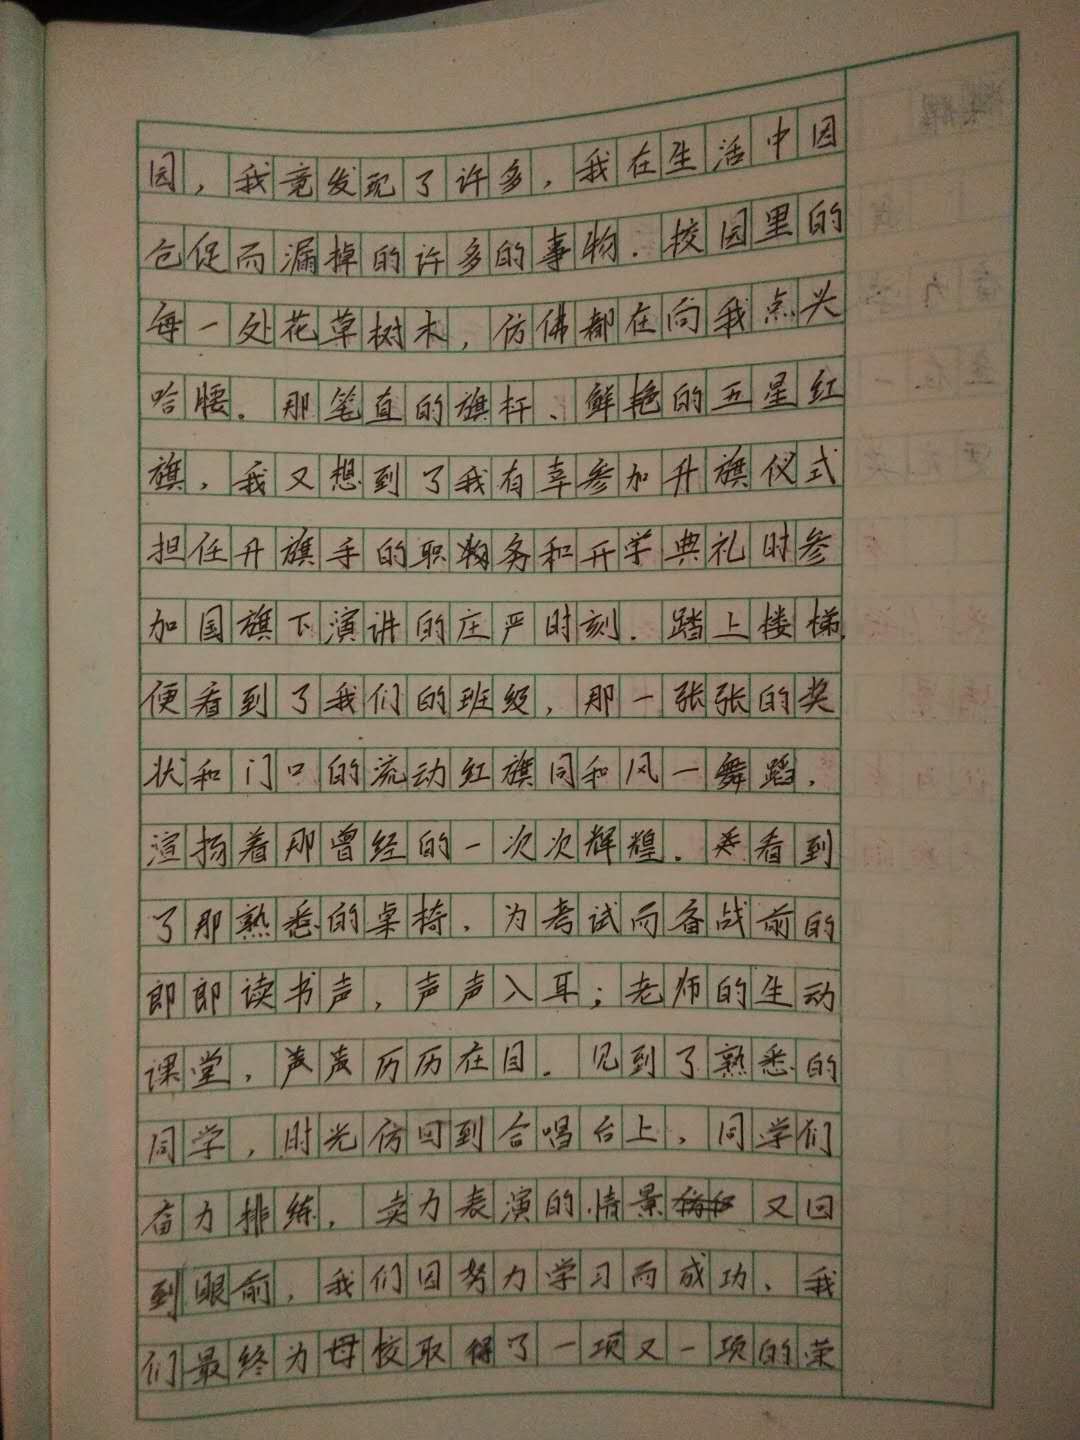 园，我竟发现了许多，我在生活中因
仓促而漏掉的许多的事物．校园里的
每一处花草树木，仿佛都在向我点头
哈腰．那笔直的旗杆、鲜艳的五星红
旗，我又想到了我有幸参加升旗仪式
担任升旗手的职务和开学典礼时参
加国旗下演讲的庄严时刻．踏上楼梯，
便看到了我们的班级，那一张张的奖
状和门口的流动红旗同和风一舞蹈，
渲扬着那曾经的一次次辉煌．看到
了那熟悉的桌椅，为考试而备战前的
郎郎读书声，声声入耳；老师的生动
课堂，声声历历在目．见到了熟悉的
同学，时光仿回到合唱台上，同学们
奋力排练，卖力表演的情景又回
到眼前，我们因努力学习而成功、我
们最终为母校取得了一项又一项的荣